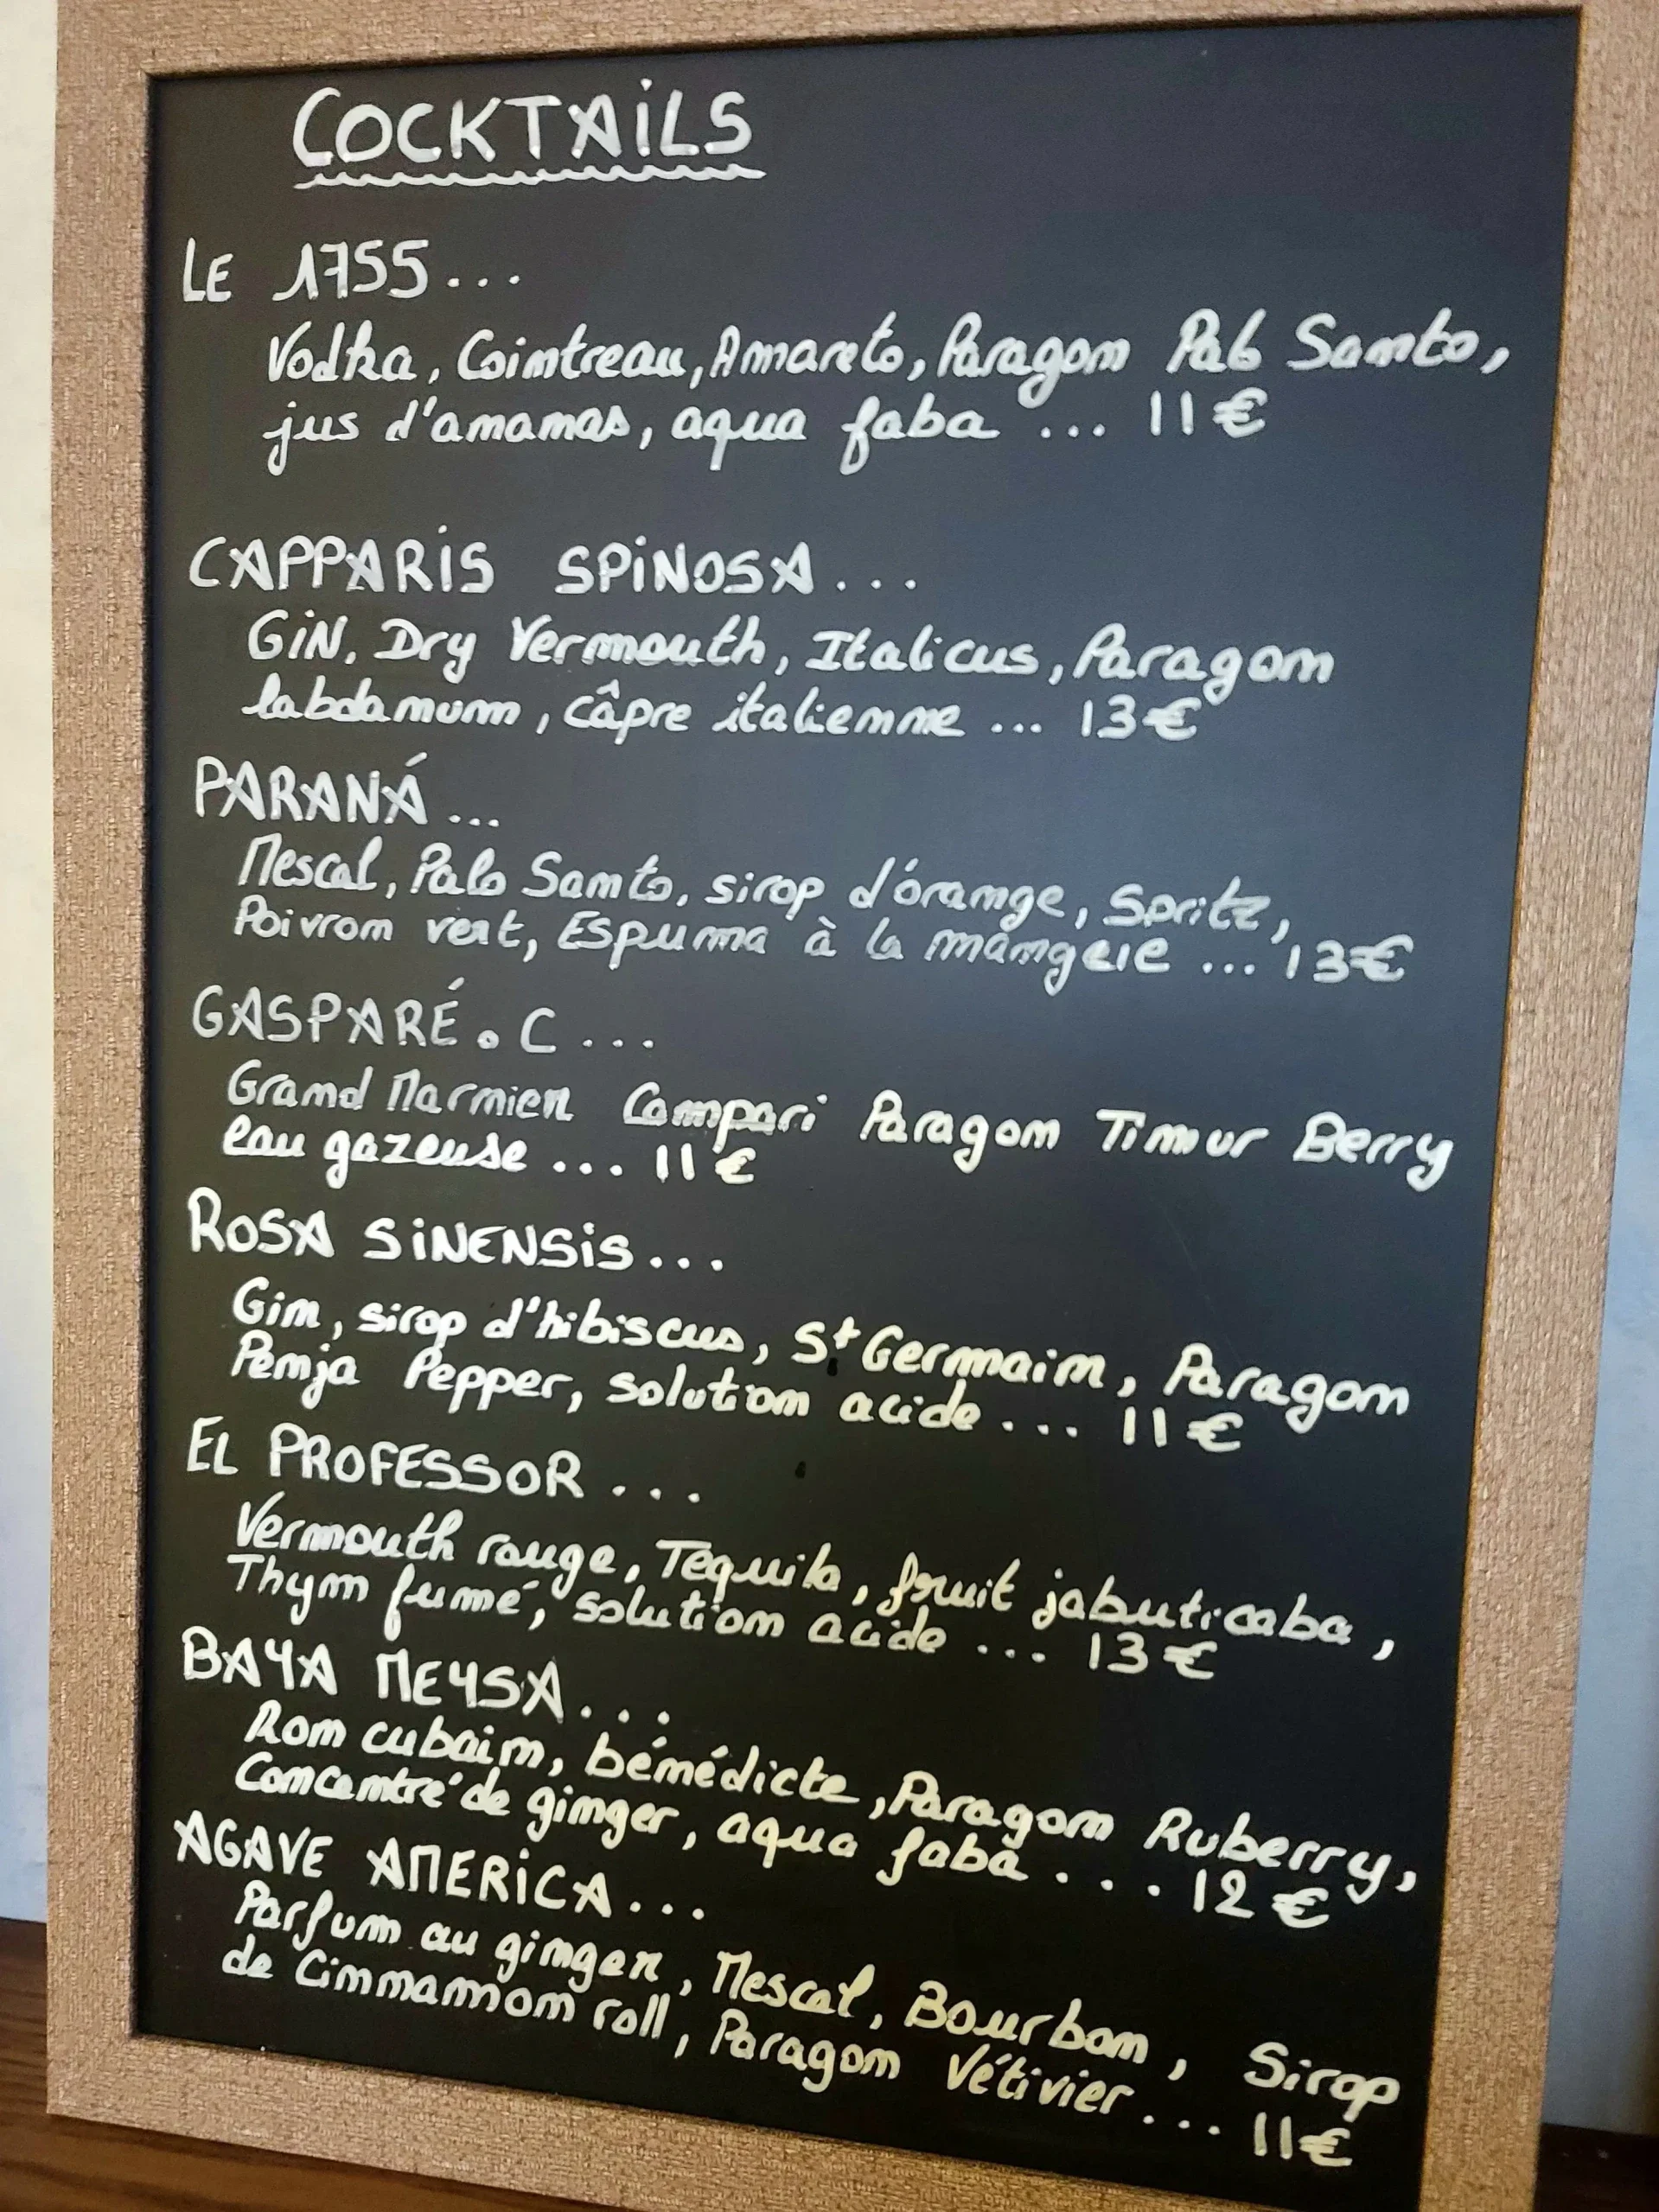 COCKTAILS
LE 1755...
Vodka, Cointreau, Amareto, Paragon Palo Santo,
jus d'ananas, aqua faba ... 11€
CAPPARIS SPINOSA...
GIN, Dry Vermouth, Italicus, Paragon
labdamum, câpre italienne ... 13€
PARANÁ...
Mescal, Palo Santo, sirop d'orange, Spritz,
Poivron vert, Espuma à la mangeie ... 13€
GASPARÉ.C...
Grand Marnier Campari Paragon Timur Berry
eau gazeuse ... 11€
ROSA SINENSIS...
Gin, sirop d'hibiscus, St Germain, Paragon
Penja Pepper, solution acide ... 11€
EL PROFESSOR...
Vermouth rouge, Tequila, fruit jabuticaba,
Thym fumé, solution acide ... 13€
BAYA MEYSA...
Rom cubain, bénédicte, Paragon Ruberry,
Concentré de ginger, aqua faba ... 12€
AGAVE AMERICA...
Parfum au ginger, Mescal, Bourbon, Sirop
de Cinnamon roll, Paragon Vétivier ... 11€